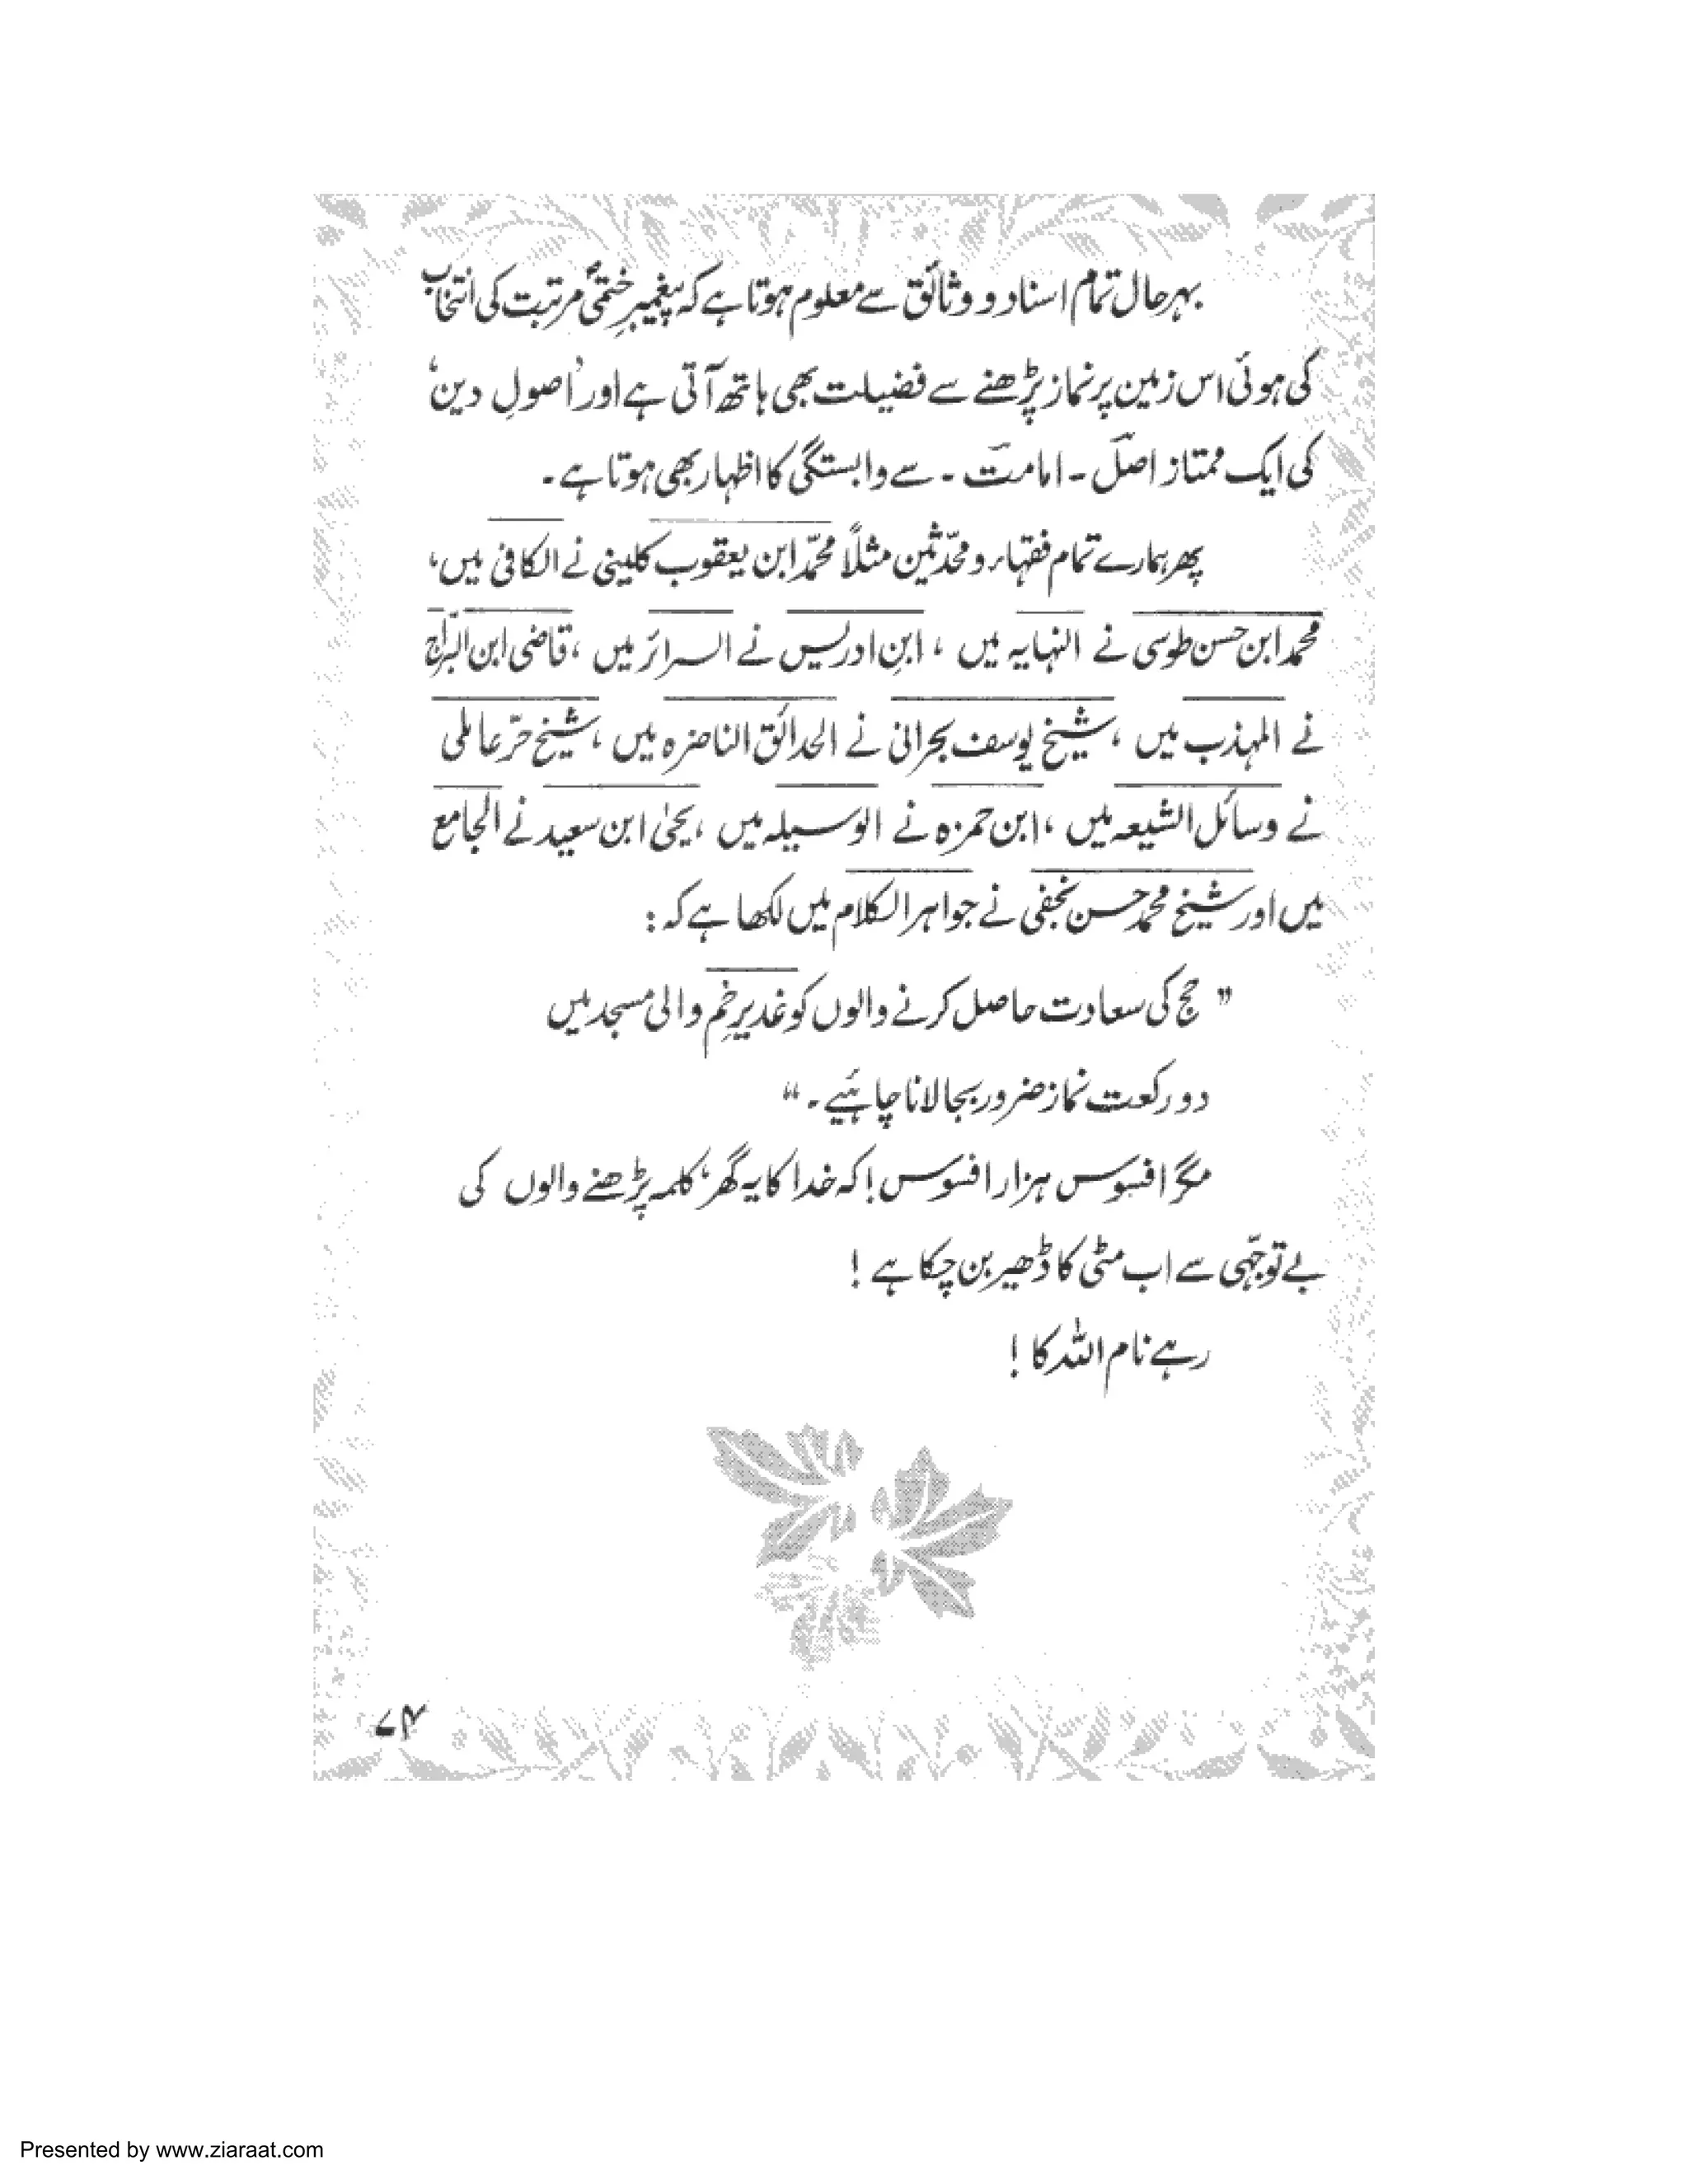 بہرحال تمام اسناد و وثائق سے معلوم ہوتا ہے کہ پیغمبرِ ختمیؐ مرتبت کی انتخاب
کی ہوئی اس زمین پر نماز پڑھنے سے فضیلت بھی ہاتھ آتی ہے اور ’اصولِ دین‘
کی ایک ممتاز اصل ۔ امامت ۔ سے وابستگی کا اظہار بھی ہوتا ہے ۔
پھر ہمارے تمام فقہاء و محدّثین مثلاً محمّد ابن یعقوب کلینی نے الکافی میں،
محمد ابن حسن طوسی نے النہایہ میں ، ابنِ ادریس نے السرائر میں ، قاضی ابن البرّاج
نے المہذب میں ، شیخ یوسف بحرانی نے الحدائق الناضرہ میں ، شیخ حرّ عاملی
نے وسائل الشیعہ میں ، ابن حمزہ نے الوسیلہ میں ، یحییٰ ابن سعید نے الجامع
میں اور شیخ محمد حسن نجفی نے جواہر الکلام میں لکھا ہے کہ :
” حج کی سعادت حاصل کرنے والوں کو غدیرِ خم والی مسجد میں
دو رکعت نماز ضرور بجا لانا چاہئیے ۔“
مگر افسوس ہزار افسوس ! کہ خدا کا یہ گھر، کلمہ پڑھنے والوں کی
بے توجّہی سے اب مٹی کا ڈھیر بن چکا ہے !
رہے نام اللہ کا !
۷۴
Presented by www.ziaraat.com